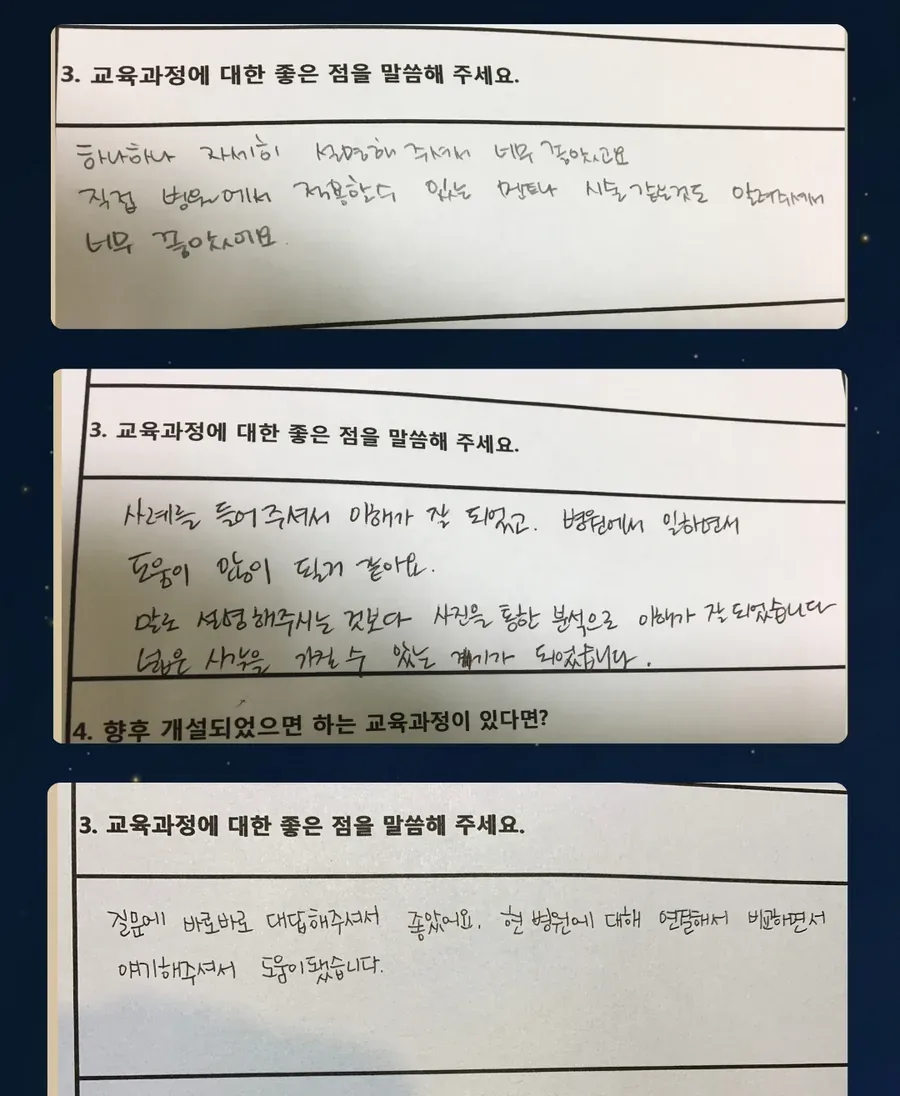 3. 교육과정에 대한 좋은 점을 말씀해 주세요.
하나하나 자세히 설명해 주셔서 너무 좋았고요
직접 병원에서 적용할수 있는 멘트나 시술같은것도 알려주셔서
너무 좋았어요.
3. 교육과정에 대한 좋은 점을 말씀해 주세요.
사례를 들어주셔서 이해가 잘 되었고. 병원에서 일하면서
도움이 많이 될거 같아요.
말로 설명해주시는 것보다 사진을 통한 분석으로 이해가 잘되었습니다
넓은 시각을 가질 수 있는 계기가 되었습니다.
4. 향후 개설되었으면 하는 교육과정이 있다면?
3. 교육과정에 대한 좋은 점을 말씀해 주세요.
질문에 바로바로 대답해주셔서 좋았어요. 현 병원에 대해 연결해서 비교하면서
얘기해주셔서 도움이됐습니다.